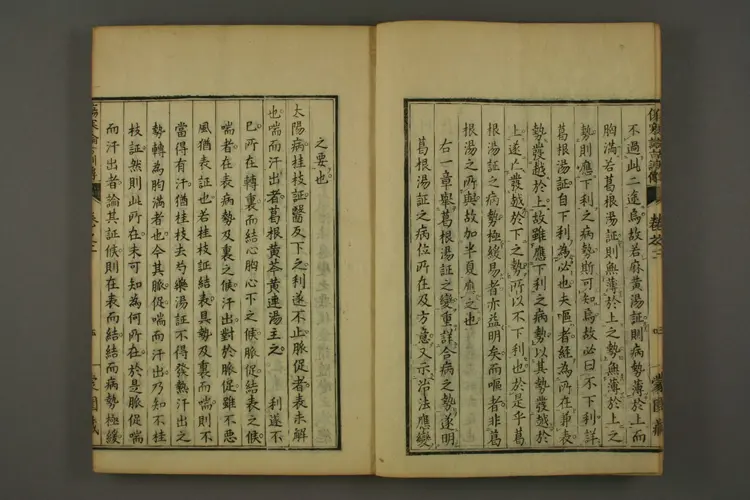 不過此二途焉故若麻黄湯証則病勢薄於上而
胸満若葛根湯証則無薄於上之勢無薄於上之
勢則應下利之病勢斯可知焉故必曰不下利詳
葛根湯証自下利為必也夫嘔者経為所在兼表
勢發越於上故雖應下利之病勢以其勢發越於
上遂亡發越於下之勢所以不下利也於是乎葛
根湯証之病勢極緩易者亦益明矣而嘔者非葛
根湯之所與故加半夏應之也
右一章舉葛根湯証之變重詳合病之勢遂明
葛根湯証之病位所在及方意又示常法應變
之要也
太陽病桂枝証醫反下之利遂不止脈促者表未解
也喘而汗出者葛根黄芩黄連湯主之 利遂不
已所在轉裏而結心胸心下之候脈促結表之候
喘者在表病勢及裏之候汗出對於脈促雖不悪
風猶表証也若桂枝証結表具勢及裏而喘則不
當得有汗猶桂枝去芍藥湯証不得發熱汗出之
勢轉為胸満者也今其脈促喘而汗出乃知不桂
枝証然則此所在未可知為何所在於是脈促喘
而汗出者論其証候則在表而結結而病勢極緩